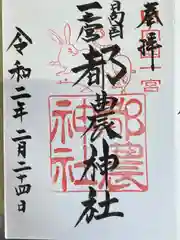 奉拝
日向国
一之宮
都農神社
令和二年二月二十四日
都農
神社